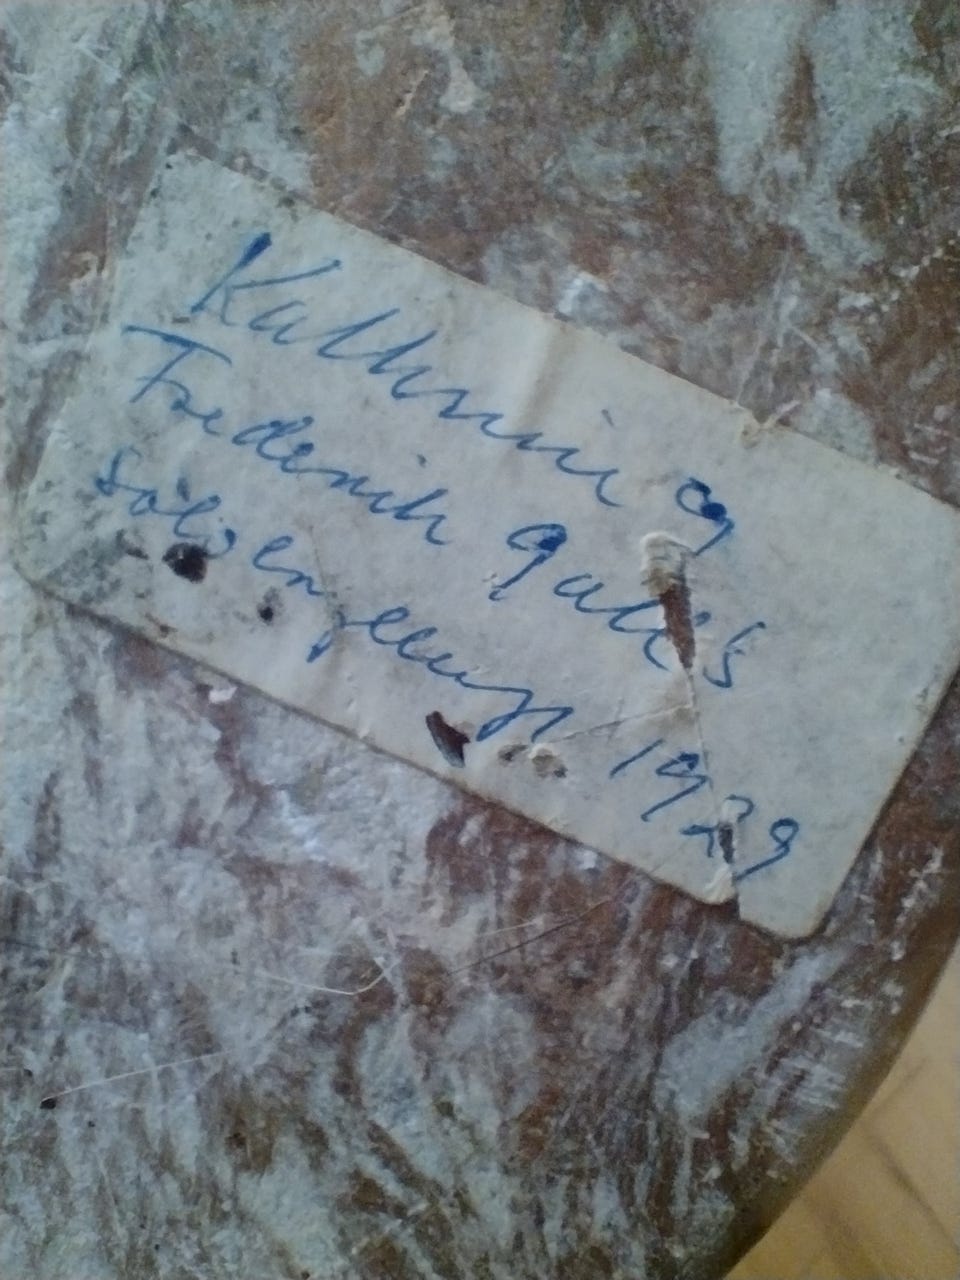 Kathrine og
Frederik Gad's
sølvbryllup 1929